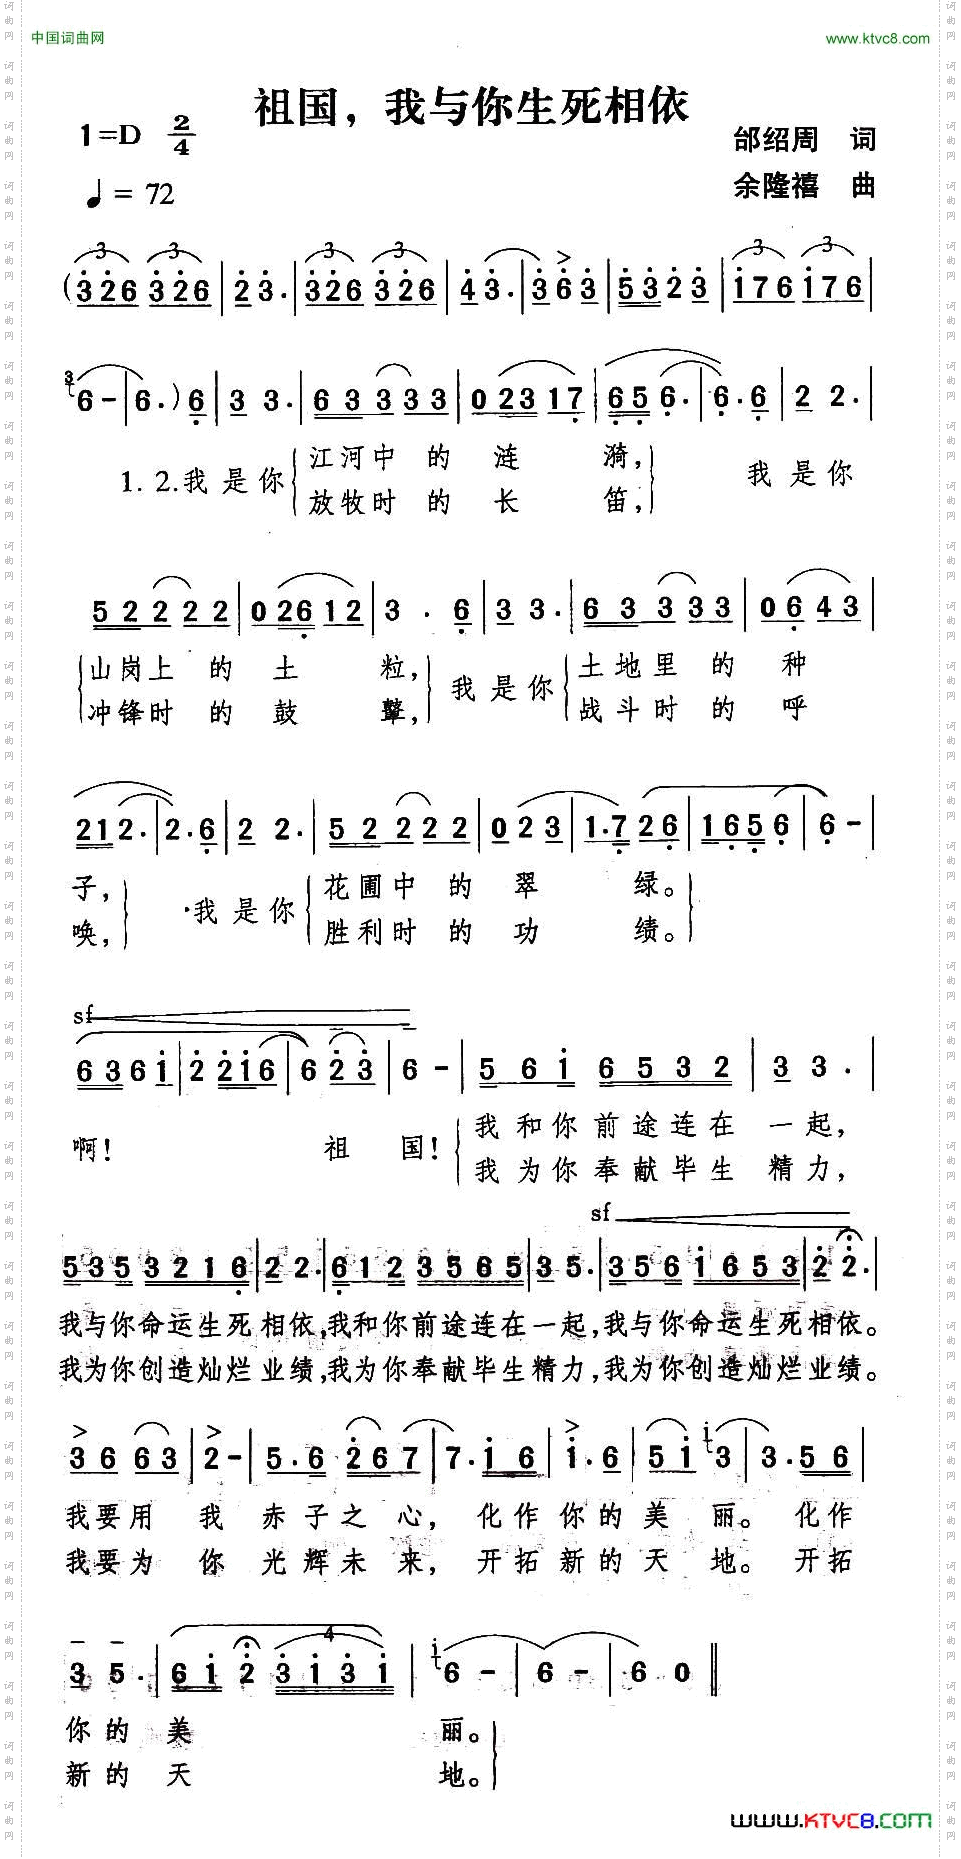 中国词曲网
www.ktvc8.com
祖国，我与你生死相依
1=D 2/4
♩= 72
邰绍周 词
余隆禧 曲
(326 326 | 23. | 326 326 | 43. 363 | 5323 | 176 176 |
6- | 6.) 6 | 3 3. | 63 333 | 0 23 17 | 65 6. | 6. 6 | 2 2. |
1. 2.我是你 江河中的涟漪， 我是你
放牧时的长笛，
52 222 | 0 26 12 | 3. 6 | 3 3. | 63 333 | 0 6 43 |
山岗上的土粒， 我是你 土地里的种
冲锋时的鼓鼙， 战斗时的呼
21 2. | 2. 6 | 2 2. | 52 222 | 0 23 | 1.7 26 | 1656 | 6- |
子， 我是你 花圃中的翠绿。
唤， 胜利时的功绩。
sf
6361 | 2 216 | 6 23 | 6- | 5 6 1 6532 | 3 3. |
啊！ 祖国！ 我和你前途连在一起，
我为你奉献毕生精力，
sf
535 3216 | 22. | 612 3565 | 35. | 356 1653 | 22. |
我与你命运生死相依，我和你前途连在一起，我与你命运生死相依。
我为你创造灿烂业绩，我为你奉献毕生精力，我为你创造灿烂业绩。
36 63 | 2- | 5.6 267 | 7. 16 | 1.6 | 51 3 | 3. 56 |
我要用我赤子之心，化作你的美丽。化作
我要为你光辉未来，开拓新的天地。开拓
3 5. | 61 2 3131 | 6- | 6- | 60 ‖
你的美丽。
新的天地。
www.KTVC8.COM